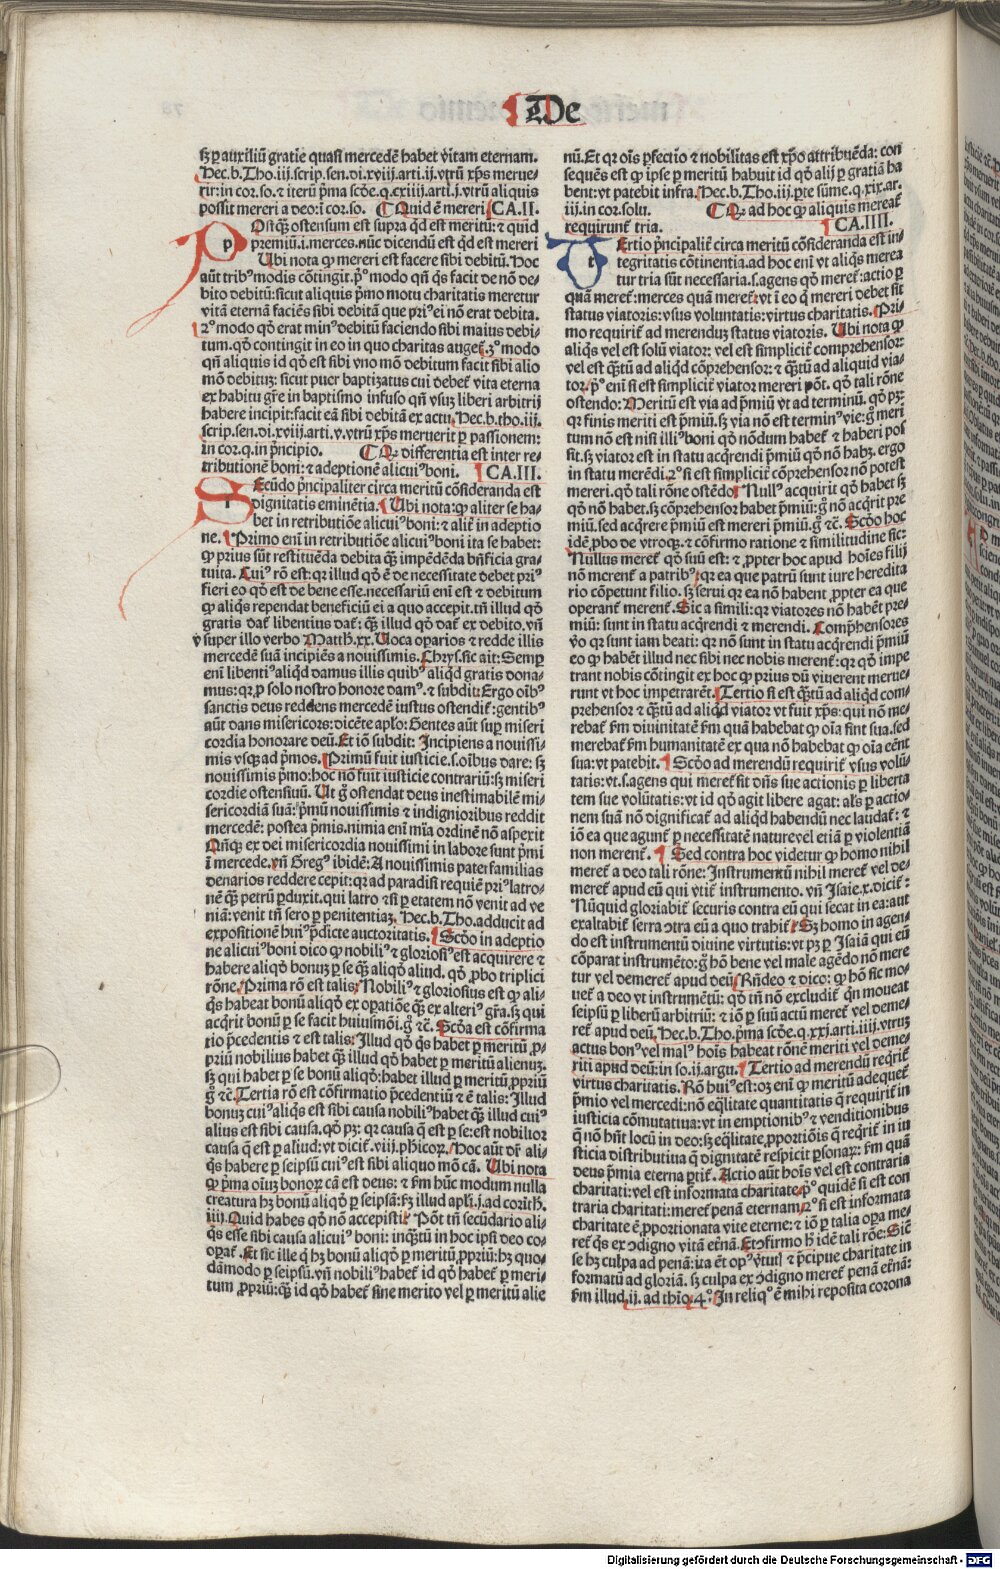 De
sꝫ ꝑ auxiliū gratie quasi mercedē habet vitam eternam.
Hec.b.Tho.iii.scrip.sen.di.xviii.arti.ii.vtrū xp̄s merue-
rit:in cor.so.⁊ iterū p̄ma scd̓e.q.cxiiii.arti.j.vtrū aliquis
possit mereri a deo:ī cor.so. ¶ Quid ē mereri CA.II.
POstꝗ̄ ostensum est supra qd̓ est meritū:⁊ quid
premiū.i.merces.nūc dicendū est qd̓ est mereri
Ubi nota ꝙ mereri est facere sibi debitū.Hoc
aūt tribꝰ modis cōtingit.p̄º modo qn̄ q̄s facit de nō de-
bito debitū:sicut aliquis p̄mo motu charitatis meretur
vitā eternā faciēs sibi debitā que priꝰ ei nō erat debita.
2º modo qd̓ erat minꝰ debitū faciendo sibi maius debi-
tum.qd̓ contingit in eo in quo charitas auget̄.3º modo
qn̄ aliquis id qd̓ est sibi vno mō debitum facit sibi alio
mō debitū: sicut puer baptizatus cui debet̄ vita eterna
ex habitu gr̄e in baptismo infuso qn̄ vsuꝫ liberi arbitrij
habere incipit:facit eā sibi debitā ex actu.Hec.b.tho.iii.
scrip.sen.di.xviii.arti.v.vtrū xp̄s meruerit ꝑ passionem:
in cor.q.in p̄ncipio. ¶ Q̄ differentia est inter re-
tributionē boni:⁊ adeptionē alicuiꝰ boni. CA.III.
SEcūdo p̄ncipaliter circa meritū cōsideranda est
dignitatis eminētia. Ubi nota:ꝙ aliter se ha-
bet in retributiōe alicuiꝰ boni:⁊ alit̄ in adeptio
ne. Primo eni in retributiōe alicuiꝰ boni ita se habet:
ꝙ prius sūt restituēda debita ꝗ̄ impēdēda bn̄ficia gra-
tuita. Cuiꝰ rō est:qr illud qd̓ ē de necessitate debet priꝰ
fieri eo qd̓ est de bene esse.necessariū eni est ⁊ debitum
ꝙ aliq̄s rependat beneficiū ei a quo accepit.tn̄ illud qd̓
gratis dat̄ libentius dat̄: ꝗ̄ illud qd̓ dat̄ ex debito.vn̄
super illo verbo Matth̓.xx.Uoca oꝑarios ⁊ redde illis
mercedē suā incipiēs a nouissimis. Chrys.sic ait:Semꝑ
eni libentiꝰ aliqd̓ damus illis quibꝰ aliqd̓ gratis dona-
mus:qr ꝓ solo nostro honore damꝰ.⁊ subdit:Ergo oībꝰ
sanctis deus reddens mercedē iustus ostendit̄:gentibꝰ
aūt dans misericors:dicēte apl̓o:Gentes aūt suꝑ miseri
cordia honorare deū.Et iō subdit: Incipiens a nouissi-
mis vsqꝫ ad p̄mos. Primū fuit iusticie.s.oībus dare: sꝫ
nouissimis p̄mo:hoc nō fuit iusticie contrariū:sꝫ miseri
cordie ostensiuū. Ut g̊ ostendat deus inestimabilē mi-
sericordiā suā:p̄mū nouissimis ⁊ indignioribus reddit
mercedē: postea p̄mis.nimia eni mīa ordinē nō aspexit
Qn̄qꝫ ex dei misericordia nouissimi in labore sunt p̄mi
ī mercede.vn̄ Gregꝰ ibidē:A nouissimis paterfamilias
denarios reddere cepit:qr ad paradisi requiē priꝰ latro-
nē ꝗ̄ petrū ꝑduxit.qui latro ⁊si ꝑ etatem nō venit ad ve
niā:venit tn̄ sero ꝑ penitentiaꝫ. Hec.b.Tho.adducit ad
expositionē huiꝰ p̄dicte auctoritatis. Scd̓o in adeptio
ne alicuiꝰ boni dico ꝙ nobiliꝰ ⁊ gloriosiꝰ est acquirere ⁊
habere aliqd̓ bonuꝫ ꝑ se ꝗ̄ aliqd̓ aliud. qd̓ ꝓbo triplici
rōne. Prima rō est talis: Nobiliꝰ ⁊ gloriosius est ꝙ ali-
q̄s habeat bonū aliqd̓ ex oꝑatiōe ꝗ̄ ex alteriꝰ gr̄a.sꝫ qui
acq̄rit bonū ꝑ se facit huiusmōi.g̊ ⁊c̄. Scd̓a est cōfirma
tio p̄cedentis ⁊ est talis: Illud qd̓ q̄s habet ꝑ meritū ꝓ-
priū nobilius habet ꝗ̄ illud qd̓ habet ꝑ meritū alienuꝫ.
sꝫ qui habet ꝑ se bonū aliqd̓:habet illud ꝑ meritū ꝓpriū
g̊ ⁊c̄. Tertia rō est cōfirmatio p̄cedentiū ⁊ ē talis: Illud
bonuꝫ cuiꝰ aliq̄s est sibi causa nobiliꝰ habet ꝗ̄ illud cuiꝰ
alius est sibi causa.qd̓ pꝫ: qr causa q̄ est ꝑ se:est nobilior
causa q̄ est ꝑ aliud:vt dicit̄.viij.ph̓icoꝝ. Hoc aūt dr̄ ali-
q̄s habere ꝑ seipsū cuiꝰ est sibi aliquo mō cā. Ubi nota
ꝙ p̄ma oīuꝫ bonoꝝ cā est deus: ⁊ s̄m hūc modum nulla
creatura hꝫ bonū aliqd̓ ꝑ seipsā:s̄m illud apl̓i.j.ad corīth̓.
iiij.Quid habes qd̓ nō accepisti? Pōt tn̄ secūdario ali-
q̄s esse sibi causa alicuiꝰ boni: inq̄ꝫtū in hoc ipsi deo co-
oꝑat̄. Et sic ille q̄ hꝫ bonū aliqd̓ ꝑ meritū ꝓpriū:hꝫ quo-
dāmodo ꝑ seipsū.vn̄ nobiliꝰ habet̄ id qd̓ habet̄ ꝑ meri-
tum ꝓpriū:ꝗ̄ id qd̓ habet̄ sine merito vel ꝑ meritū alie
nū. Et qr oīs ꝑfectio ⁊ nobilitas est xp̄o attribuēda: con
sequēs est ꝙ ipse ꝑ meritū habuit id qd̓ alij ꝑ gratiā ha
bent:vt patebit infra. Hec.b.Tho.iii.ꝑte sūme.q.xix.ar.
iij.in cor.solu. ¶ Q̄ ad hoc ꝙ aliquis mereat̄
requirunt̄ tria. CA.IIII.
TErtio p̄ncipalit̄ circa meritū cōsideranda est in-
tegritatis cōtinentia.ad hoc eni vt aliq̄s merea
tur tria sūt necessaria.s.agens qd̓ meret̄:actio ꝑ
quā meret̄:merces quā meret̄.vt ī eo q̄ mereri debet sit
status viatoris:vsus voluntatis:virtus charitatis. Pri-
mo requirit̄ ad merenduꝫ status viatoris. Ubi nota ꝙ
aliq̄s vel est solū viator: vel est simplicit̄ comprehensor:
vel est q̄ꝫtū ad aliqd̓ cōprehensor: ⁊ q̄ꝫtū ad aliquid via-
tor. p̄º eni si est simplicit̄ viator mereri pōt. qd̓ tali rōne
ostendo: Meritū est via ad p̄miū vt ad terminū. qd̓ pꝫ:
qr finis meriti est p̄miū.sꝫ via nō est terminꝰ vie:g̊ meri
tum nō est nisi illiꝰ boni qd̓ nōdum habet̄ ⁊ haberi pos
sit.sꝫ viator est in statu acq̄rendi p̄miū qd̓ nō habꝫ.ergo
in statu merēdi.2º si est simplicit̄ cōprehensor nō potest
mereri.qd̓ tali rōne ostēdo: Nullꝰ acquirit qd̓ habet sꝫ
qd̓ nō habet.sꝫ cōprehensor habet p̄miū:g̊ nō acq̄rit pre
miū.sed acq̄rere p̄miū est mereri p̄miū.g̊ ⁊c̄. Scd̓o hoc
idē ꝓbo de vtroqꝫ.⁊ cōfirmo ratione ⁊ similitudine sic:
Nullus meret̄ qd̓ suū est: ⁊ ꝓpter hoc apud hoīes filij
nō merent̄ a patribꝰ:qr ea que patrū sunt iure heredita
rio cōpetunt filio. sꝫ serui qr ea nō habent ꝓpter ea que
operant̄ merent̄. Sic a simili: qr viatores nō habēt pre-
miū: sunt in statu acq̄rendi ⁊ merendi. Comp̄hensores
vo qr sunt iam beati: qr nō sunt in statu acq̄rendi p̄miū
eo ꝙ habēt illud nec sibi nec nobis merent̄:qr qd̓ impe
trant nobis cōtingit ex hoc ꝙ prius dū viuerent merue-
runt vt hoc impetrarēt. Tertio si est q̄ꝫtū ad aliqd̓ com-
prehensor ⁊ q̄ꝫtū ad aliqd̓ viator vt fuit xp̄s: qui nō me-
rebat̄ s̄m diuinitatē s̄m quā habebat ꝙ oīa sint sua.sed
merebat̄ s̄m humanitatē ex qua nō habebat ꝙ oīa eēnt
sua:vt patebit. Scd̓o ad merendū requirit̄ vsus volū-
tatis:vt.s.agens qui meret̄ sit dn̄s sue actionis ꝑ liberta
tem sue volūtatis:vt id qd̓ agit libere agat: al̓s ꝑ actio-
nem suā nō dignificat̄ ad aliqd̓ habendū nec laudat̄: ⁊
iō ea que agunt̄ ꝑ necessitatē nature vel etiā ꝑ violentiā
non merent̄. Sed contra hoc videtur ꝙ homo nihil
meret̄ a deo tali rōne: Instrumentū nihil meret̄ vel de-
meret̄ apud eū qui vtit̄ instrumento. vn̄ Isaie.x.dicit̄:
Nūquid gloriabit̄ securis contra eū qui secat in ea:aut
exaltabit̄ serra ꝯtra eū a quo trahit̄? Sꝫ homo in agen-
do est instrumentū diuine virtutis:vt pꝫ ꝑ Isaiā qui eū
cōparat instrumēto:g̊ hō bene vel male agēdo nō mere
tur vel demeret̄ apud deū. Rn̄deo ⁊ dico: ꝙ hō sic mo-
uet̄ a deo vt instrumētū: qd̓ tn̄ nō excludit̄ qn moueat
seipsū ꝑ liberū arbitriū: ⁊ iō ꝑ suū actū meret̄ vel deme-
ret̄ apud deū. Hec.b.Tho.p̄ma scd̓e.q.xxj.arti.iiij.vtruꝫ
actus bonꝰ vel malꝰ hoīs habeat rōnē meriti vel deme-
riti apud deū:in so.ij.argu. Tertio ad merendū req̄rit̄
virtus charitatis. Rō huiꝰ est:oꝫ eni ꝙ meritū adequet̄
p̄mio vel mercedi:nō eq̄litate quantitatis q̄ requirit̄ in
iusticia cōmutatiua:vt in emptionibꝰ ⁊ venditionibus
q̄ nō hn̄t locū in deo:sꝫ eq̄litate ꝓportiōis q̄ req̄rit̄ in iu
sticia distributiua q̄ dignitatē respicit ꝑsonaꝝ: s̄m quā
deus p̄mia eterna ꝑtit̄. Actio aūt hoīs vel est contraria
charitati:vel est informata charitate.p̄º quidē si est con
traria charitati:meret̄ penā eternam.2º si est informata
charitate ē ꝓportionata vite eterne:⁊ iō ꝑ talia oꝑa me-
ret̄ q̄s ex ꝯdigno vitā et̄nā. Et ꝯfirmo h̓ idē tali rōe: Sic̄
se hꝫ culpa ad penā: ita ēt opꝰ v̓tutꝭ ⁊ p̄cipue charitate in
formatū ad gloriā. sꝫ culpa ex ꝯdigno meret̄ penā et̄nā:
s̄m illud.ij. ad thīo.4º. In reliqꝰ ē mihi reposita corona
Digitalisierung gefördert durch die Deutsche Forschungsgemeinschaft - DFG